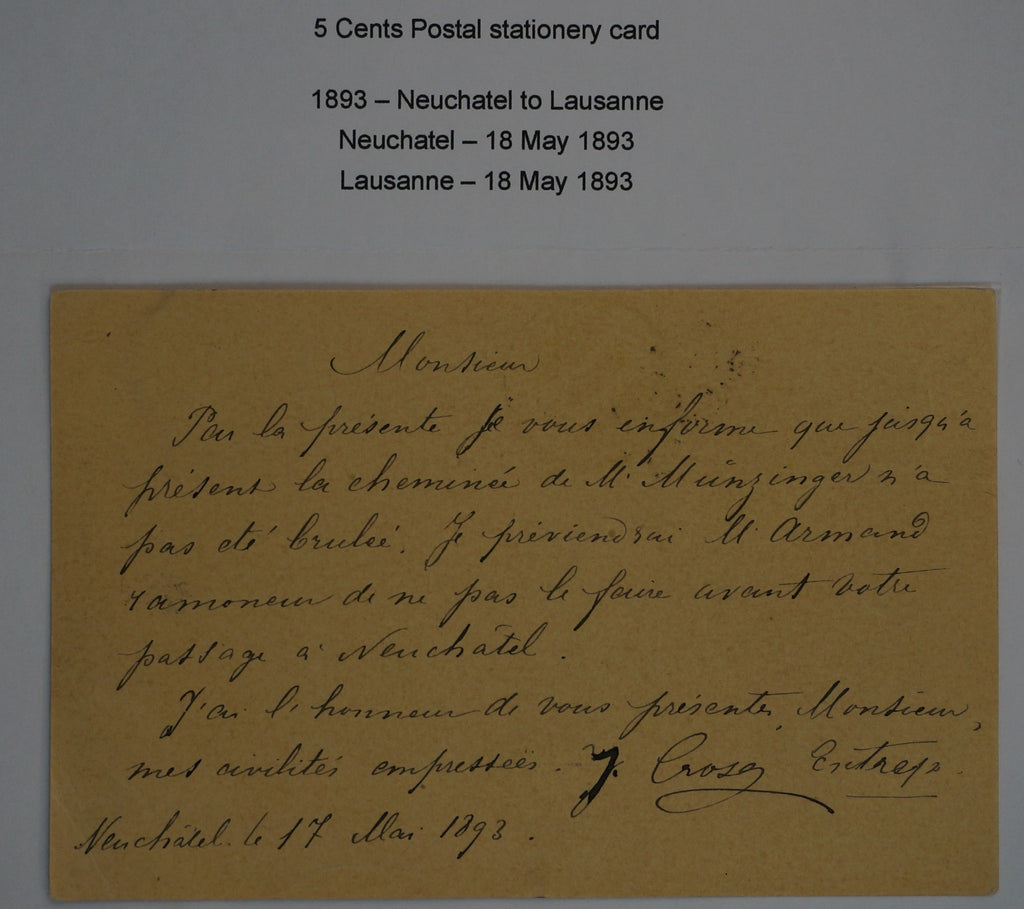 5 Cents Postal stationery card
1893 – Neuchatel to Lausanne
Neuchatel – 18 May 1893
Lausanne – 18 May 1893
Monsieur
Par la présente je vous informe que jusqu'à
présent la cheminée de Mr Münzinger n'a
pas été brulée. Je préviendrai Mr Armand
ramoneur de ne pas le faire avant votre
passage à Neuchâtel.
J'ai l'honneur de vous présenter, Monsieur,
mes civilités empressées. J. Crosa Entrepr.
Neuchâtel le 17 Mai 1893.